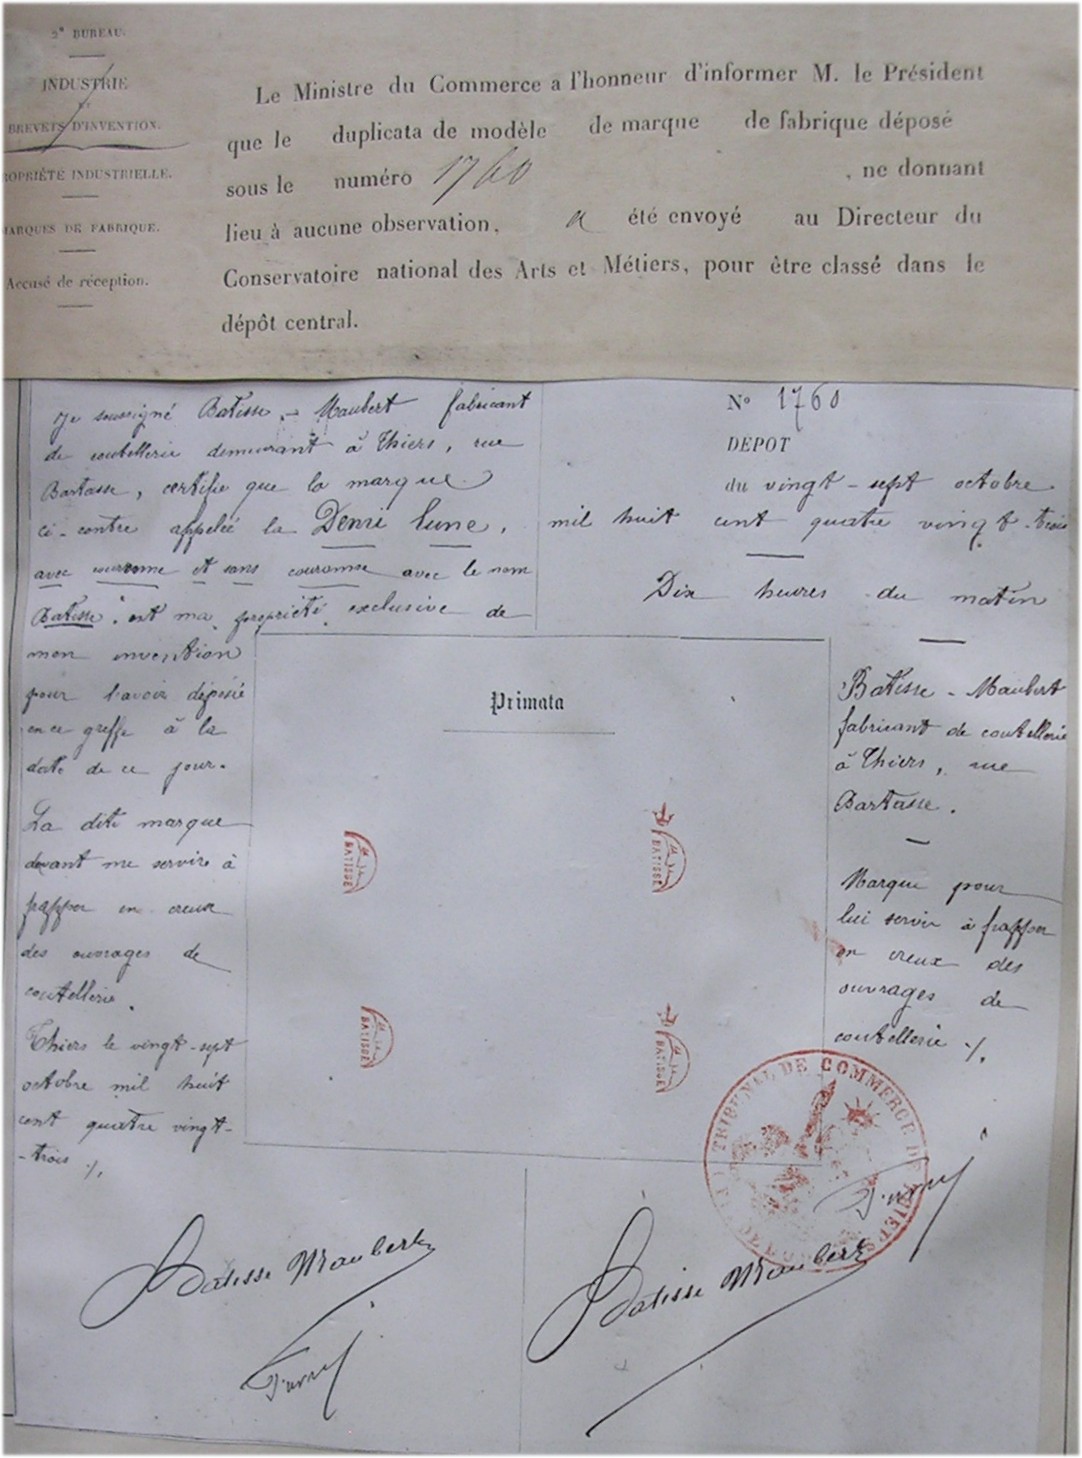 2e BUREAU.
INDUSTRIE
ET
BREVETS D'INVENTION.
ROPRIÉTÉ INDUSTRIELLE.
MARQUES DE FABRIQUE.
Accusé de réception.
Le Ministre du Commerce a l'honneur d'informer M. le Président
que le duplicata de modèle de marque de fabrique déposé
sous le numéro 1760 , ne donnant
lieu à aucune observation, a été envoyé au Directeur du
Conservatoire national des Arts et Métiers, pour être classé dans le
dépôt central.
Je soussigné Batisse - Maubert fabricant
de coutellerie demeurant à Thiers, rue
Bartasse, certifie que la marque
ci-contre appelée la Demi lune,
avec couronne et sans couronne avec le nom
Batisse, est ma propriété exclusive de
mon invention
pour l'avoir déposée
en ce greffe à la
date de ce jour.
La dite marque
devant me servir à
frapper en creux
des ouvrages de
coutellerie.
Thiers le vingt-sept
octobre mil huit
cent quatre vingt-
-trois ./.
No 1760
DÉPOT
du vingt-sept octobre
mil huit cent quatre vingt-trois
Dix heures du matin
Primata
BATISSE
BATISSE
BATISSE
BATISSE
Batisse - Maubert
fabricant de coutellerie
à Thiers, rue
Bartasse.
Marque pour
lui servir à frapper
en creux des
ouvrages de
coutellerie ./.
TRIBUNAL DE COMMERCE DE THIERS
Batisse Maubert
Batisse Maubert